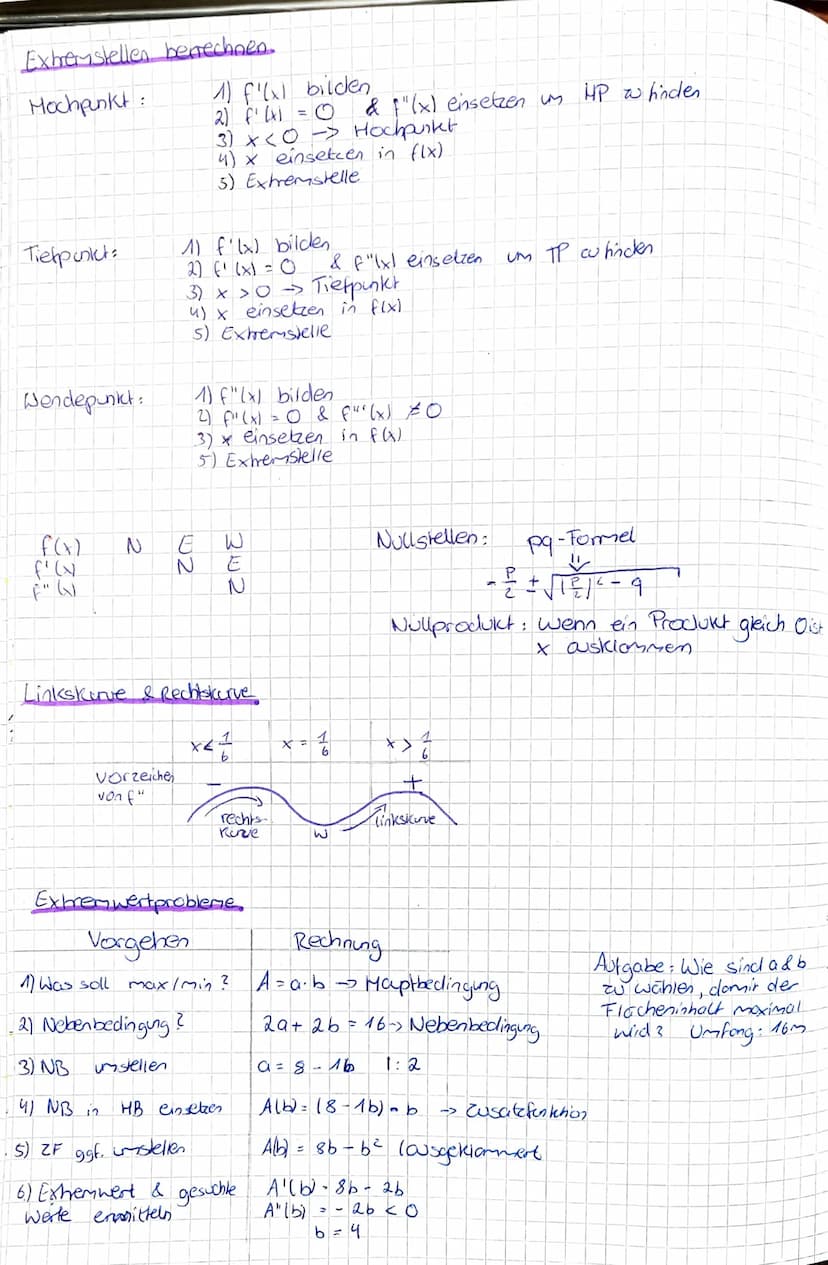 Extremstellen berechnen.
Hochpunkt: 1) f'(x) bilden
2) f'(x) = 0 & f"(x) einsetzen um HP zu finden
3) x < 0 -> Hochpunkt
4) x einsetzen in f(x)
5) Extremstelle
Tiefpunkt: 1) f'(x) bilden
2) f'(x) = 0 & f"(x) einsetzen um TP zu finden
3) x > 0 -> Tiefpunkt
4) x einsetzen in f(x)
5) Extremstelle
Wendepunkt: 1) f"(x) bilden
2) f"(x) = 0 & f"'(x) ≠ 0
3) x einsetzen in f(x)
5) Extremstelle
f(x) N E W
f'(x) N E
f"(x) N
Nullstellen: pq-Formel
- p/2 ± √(p/2)² - q
Nullprodukt: Wenn ein Produkt gleich 0 ist
x ausklammen
Linkskurve & Rechtskurve
x < 1/6 x = 1/6 x > 1/6
Vorzeichen - +
von f"
rechts- linkskurve
kurve W
Extremwertprobleme
Vorgehen Rechnung
1) Was soll max/min? A = a·b -> Haptbedingung
2) Nebenbedingung? 2a + 2b = 16 -> Nebenbedingung
3) NB umstellen a = 8 - 1b |: 2
4) NB in HB einsetzen A(b) = (8 - 1b) · b -> Zusatzfunktion
5) ZF ggf. umstellen A(b) = 8b - b² (ausgeklammert
6) Extremwert & gesuchte A'(b) = 8b - 2b
Werte ermitteln A"(b) = - 2b < 0
b = 4
Aufgabe: Wie sind a & b
zu wählen, damit der
Flächeninhalt maximal
wird? Umfang: 16m